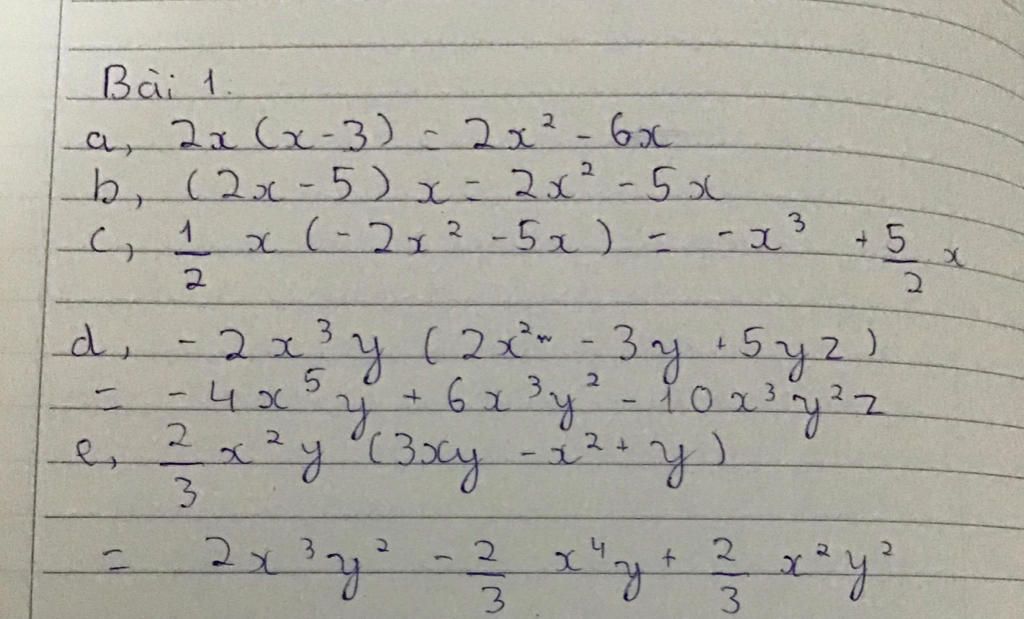 Bài 1.
a, 2x(x-3) = 2x² - 6x
b, (2x - 5) x = 2x² - 5x
c, 1/2 x (-2x² - 5x) = -x³ + 5/2 x
d, -2x³y (2x² - 3y + 5yz)
= -4x⁵y + 6x³y² - 10x³y²z
e, 2/3 x²y (3xy - x² + y)
= 2x³y² - 2/3 x⁴y + 2/3 x²y²